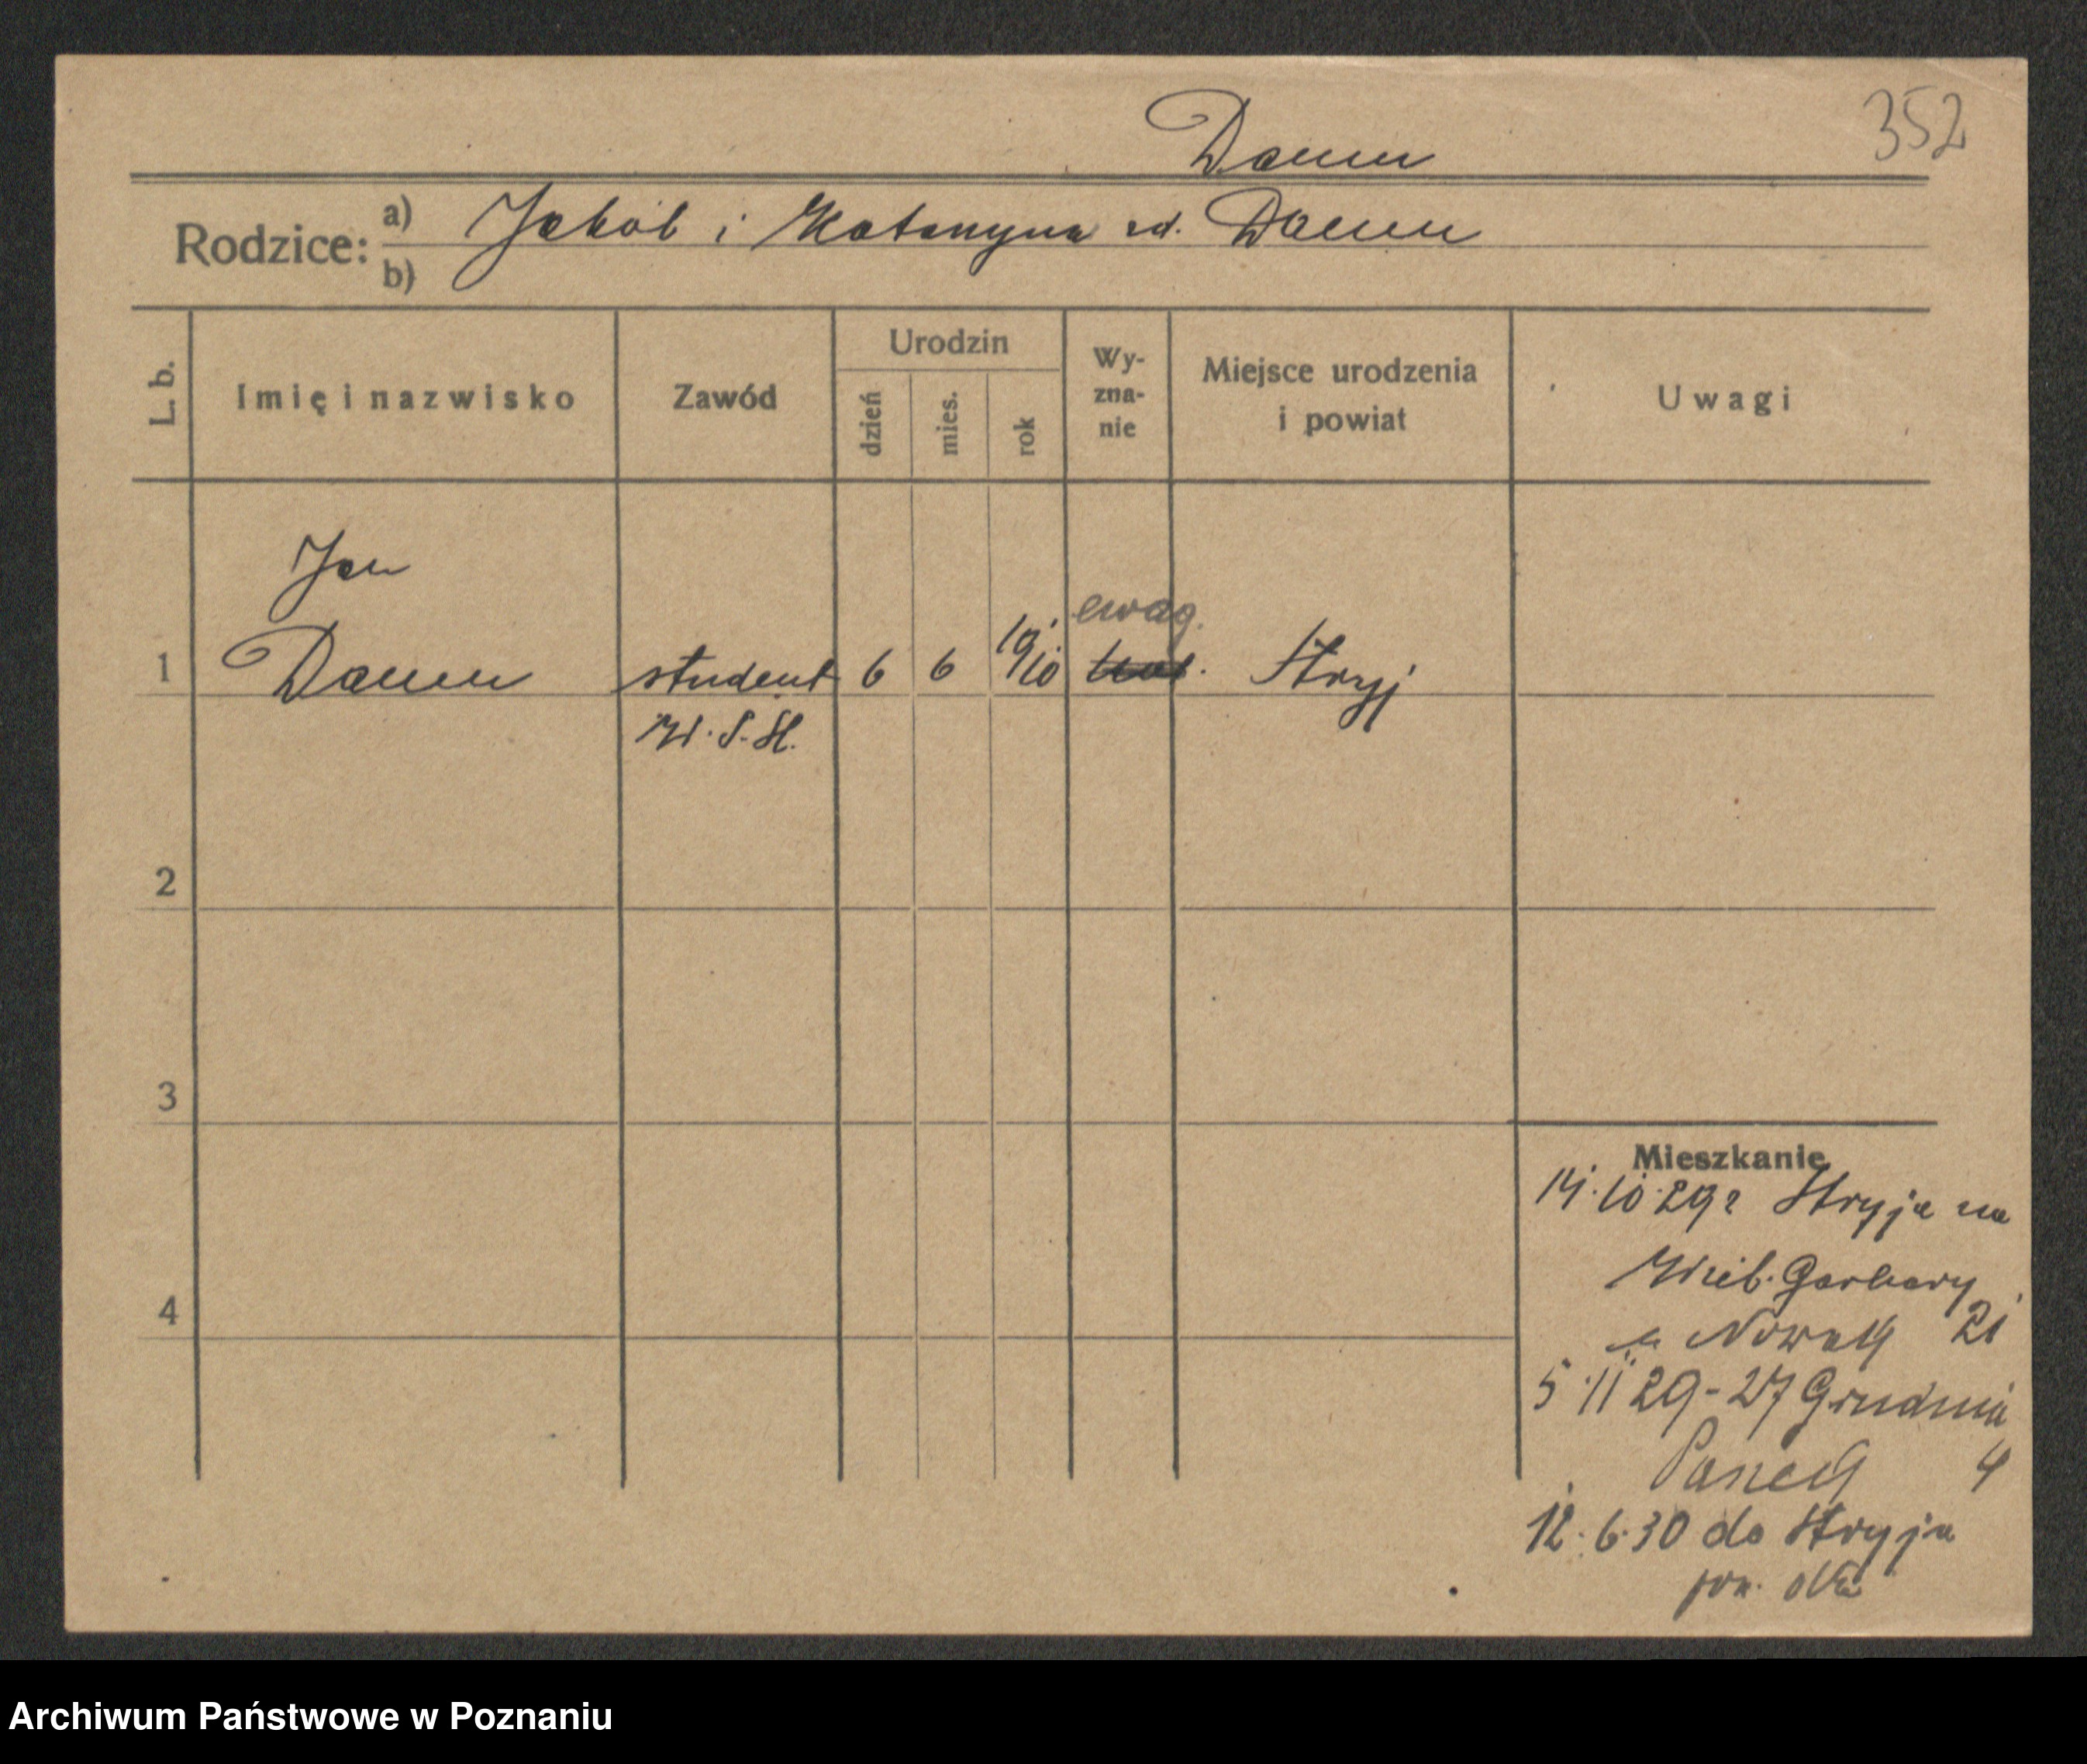 352
Damm
Rodzice: a) Jakób i Katarzyna zd. Damm
b)
L. b.
Imię i nazwisko
Zawód
Urodzin
dzień
mies.
rok
Wy-
zna-
nie
Miejsce urodzenia
i powiat
Uwagi
Jan
ewag.
1 Damm student 6 6 1910 Stryj
W. S. H.
2
3
4
Mieszkanie
14. 10. 29 z Stryja na
Wielk. Garbary
Nowak 21
5 11 29 - 27 Grudnia
4
12. 6. 30 do Stryja
Archiwum Państwowe w Poznaniu